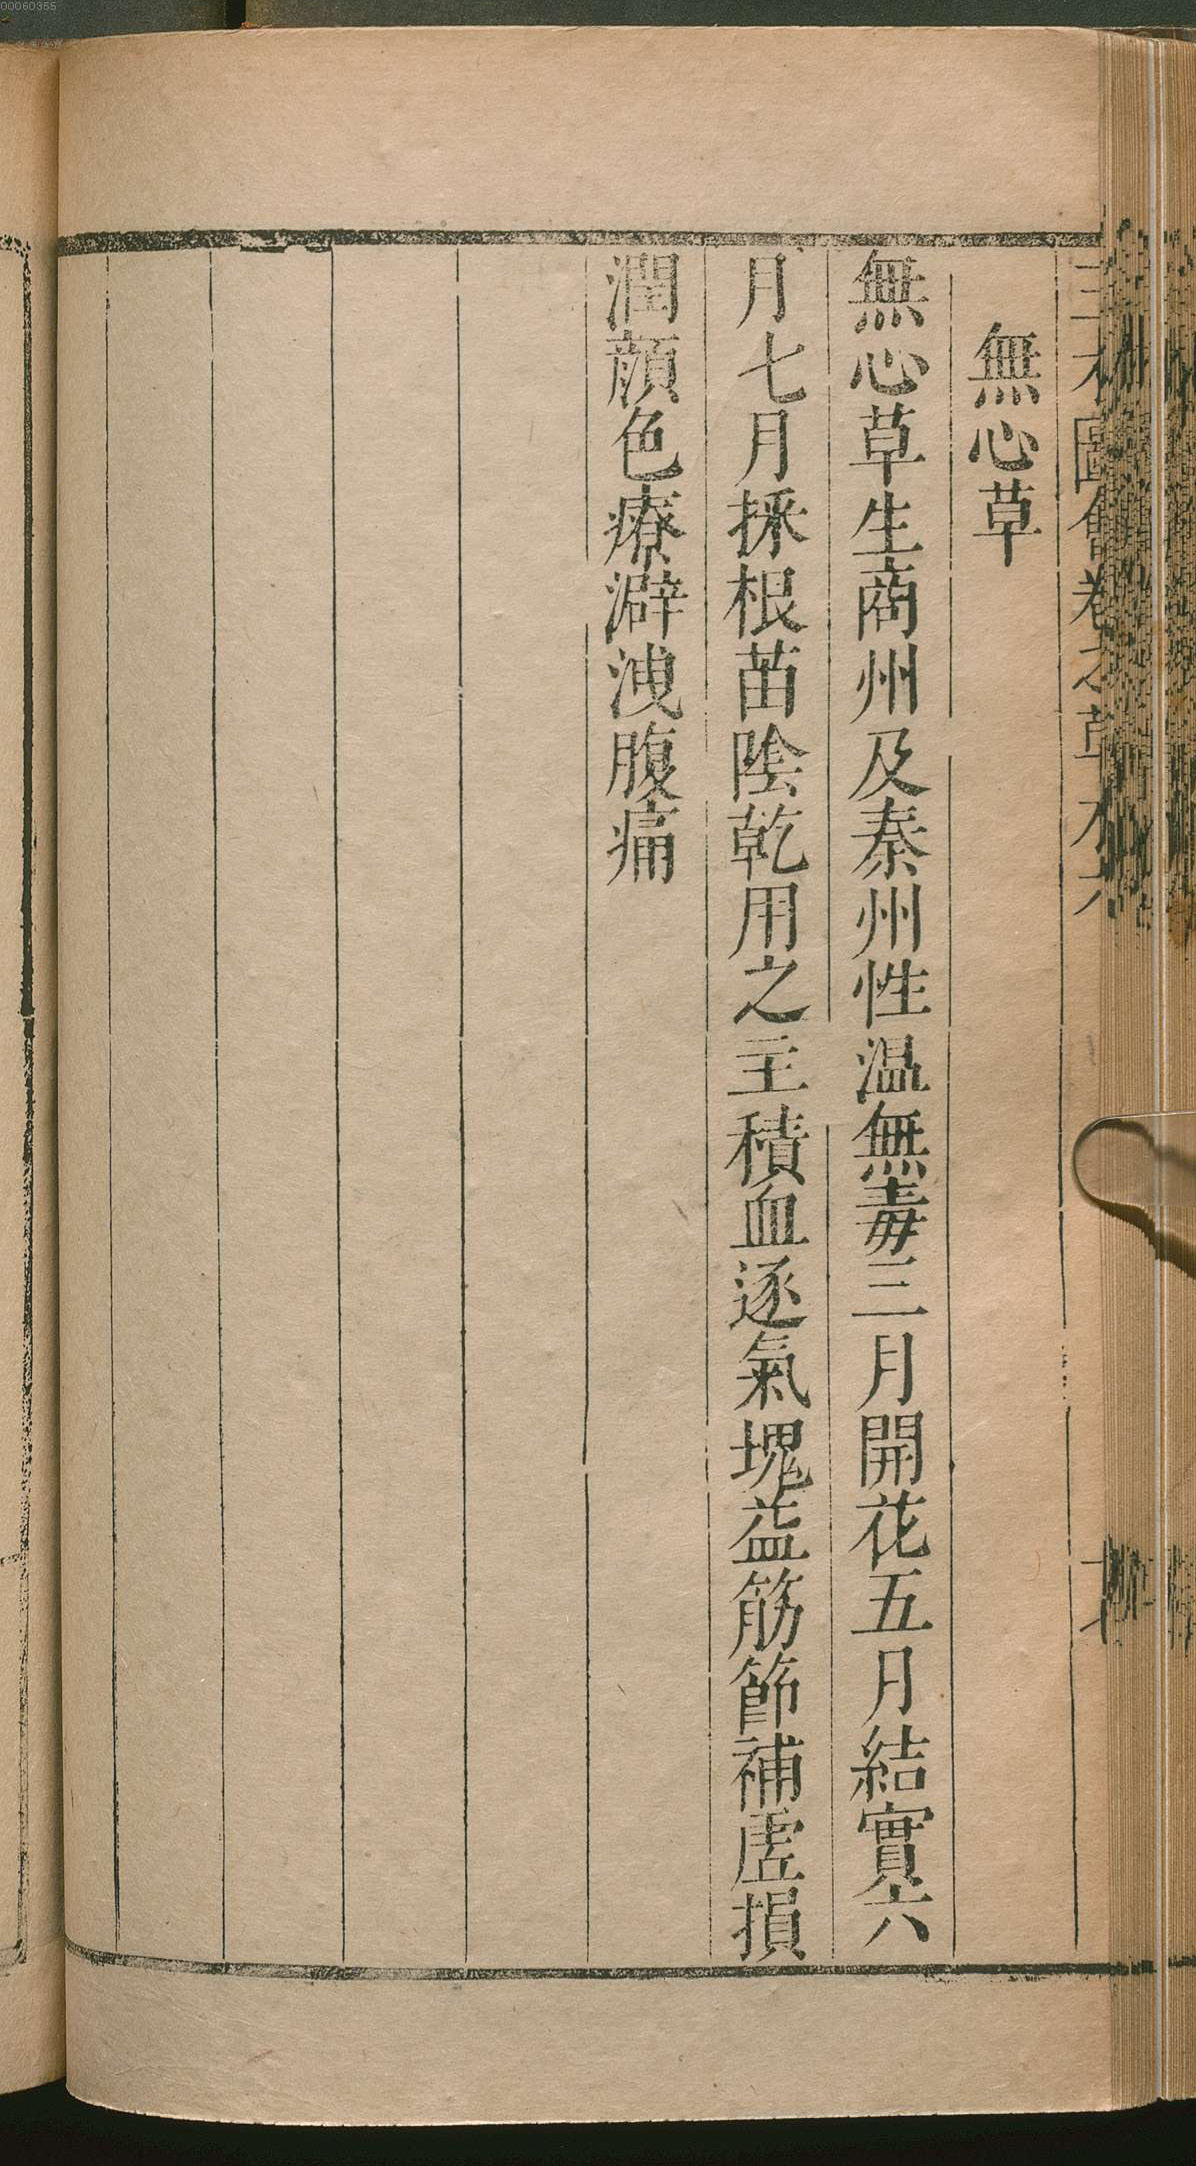 00060355
無心草
無心草生商州及秦州性温無毒三月開花五月結實六
月七月採根苗陰乾用之主積血逐氣塊益筋節補虛損
潤顔色療澼洩腹痛